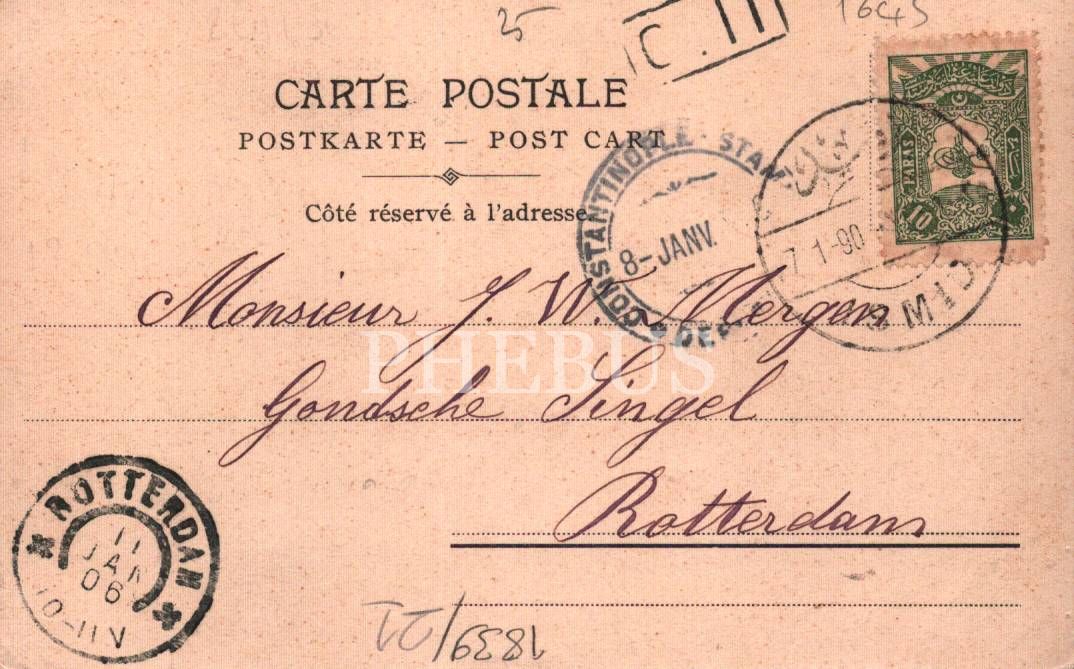 25
1645
C. 11
CARTE POSTALE
POSTKARTE — POST CART
Côté réservé à l'adresse
10 PARAS
CONSTANTINOPLE - STAM
8-JANV.
DEP
7 1-90
SMID
Monsieur J. W. Mergen
PHEBUS
Gondsche Singel
Rotterdam
ROTTERDAM
11
JAN
06
10-11V
1839/21